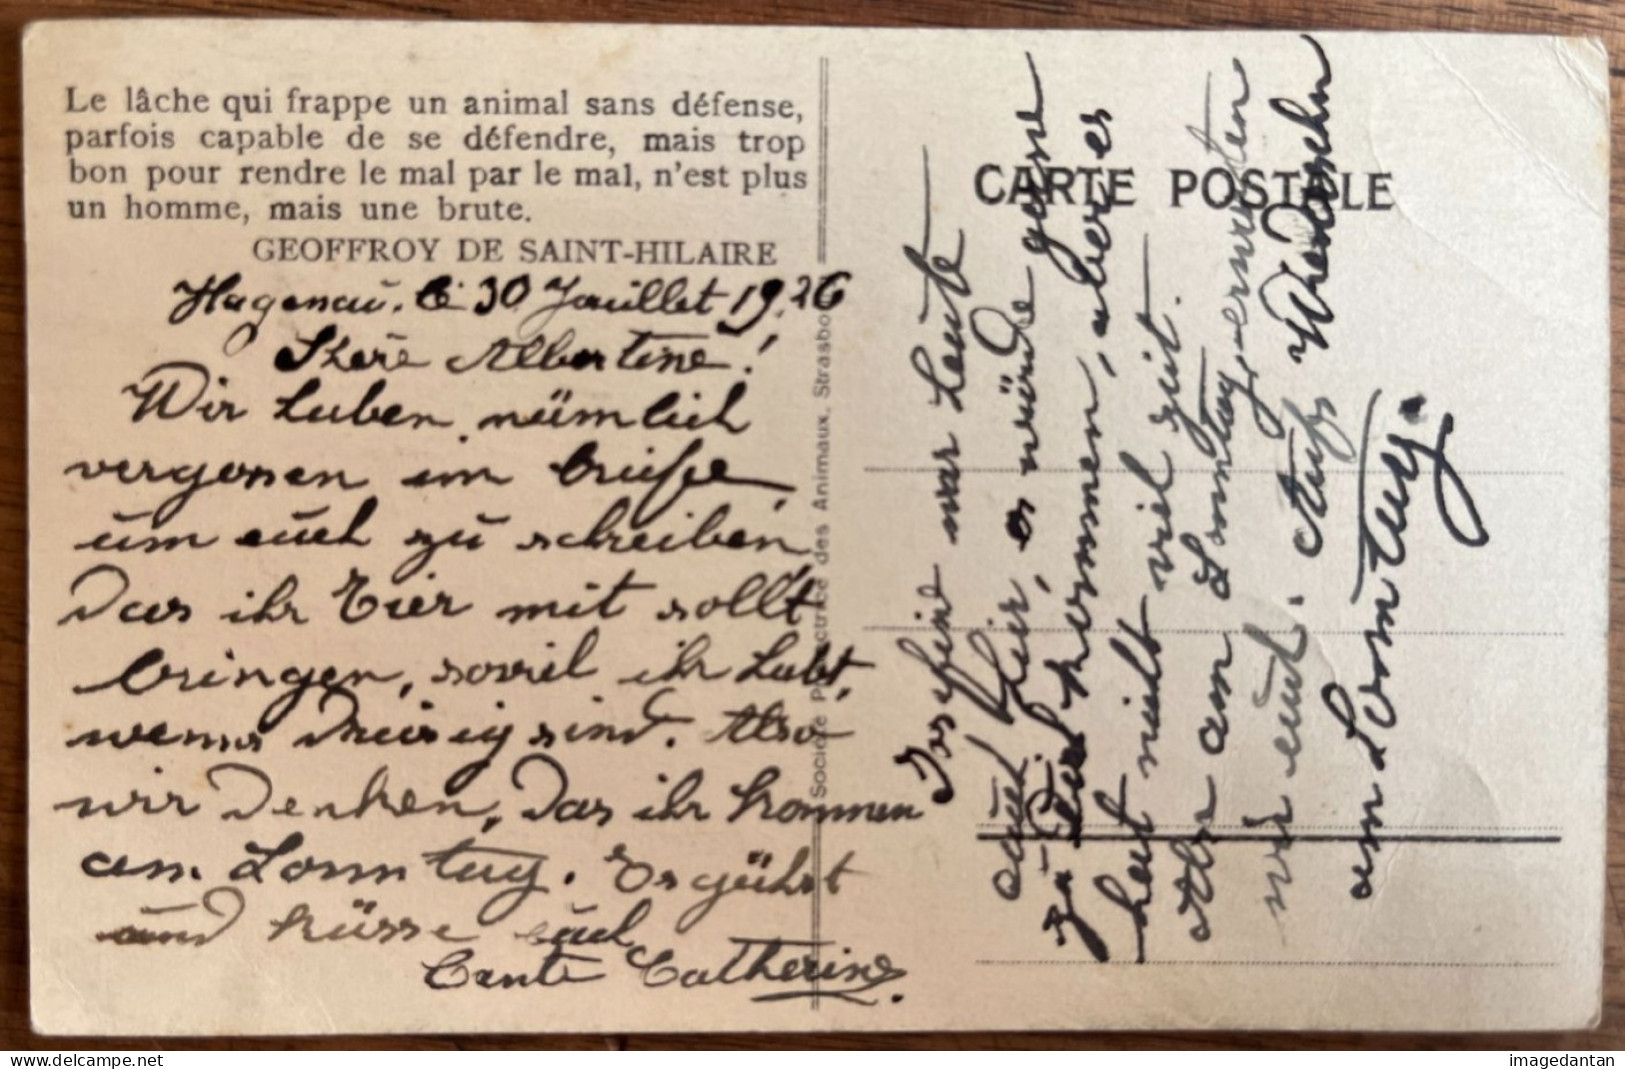 Le lâche qui frappe un animal sans défense,
parfois capable de se défendre, mais trop
bon pour rendre le mal par le mal, n'est plus
un homme, mais une brute.
GEOFFROY DE SAINT-HILAIRE
Hagenau, le 30 Jouillet 1926
Albertine!
Wir haben nämlich
vergessen im briefe,
um euch zu schreiben,
das ihr Eier mit sollt
bringen, soviel ihr habt,
wenns dreisig sind. Also
wir denken, das ihr kommen
am Sonntag. Es grühst
und küsse euch
Tante Catherine.
Société Protectrice des Animaux, Strasbo
CARTE POSTALE
Josefine war heute
auch hier, es würde gerne
zu Euch kommen, aber es
hat nicht viel zeit.
Also am Sonntag, erwarten
wir euch. Aufs Wiedersehn
am Sonntag.